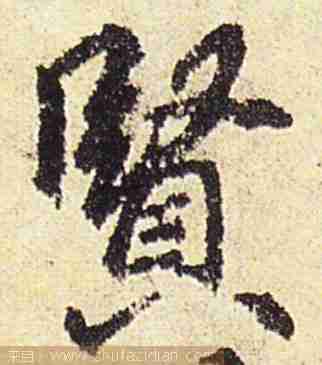 賢
来自：www.shufazidian.com